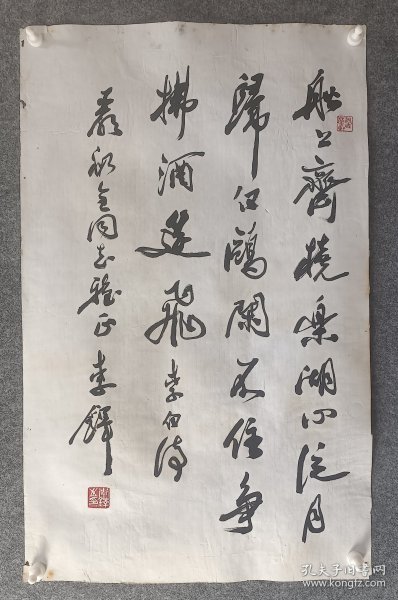 船上齊橈樂湖心泛月
歸白鷗閑不住爭
拂酒筵飛 李白詩
嚴同志雅正 李鐸
孔夫子旧书网
www.kongfz.com